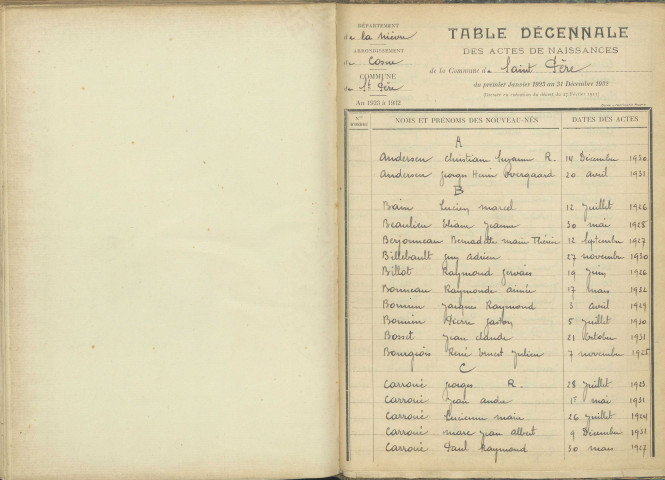 DÉPARTEMENT
de la Nièvre
ARRONDISSEMENT
de Cosne
COMMUNE
de St Père
AU 1923 à 1932
TABLE DÉCENNALE
DES ACTES DE NAISSANCES
de la Commune de Saint Père
du premier Janvier 1923 au 31 Décembre 1932
NOMS ET PRÉNOMS DES NOUVEAU-NÉS DATES DES ACTES
A
Andersen Christiane Suzanne R. 14 Décembre 1930
Andersen Georges Henri Overgaard 20 avril 1931
B
Bain Lucien Marcel 12 Juillet 1926
Beaulieu Eliane Jeanne 30 mai 1928
Berjonneau Bernadette Marie Thérèse 12 Septembre 1927
Billebault Guy Adrien 27 novembre 1930
Billot Raymond Gervais 19 Juin 1926
Bonneau Raymonde Aimée 17 mars 1932
Bonnin Jacques Raymond 3 avril 1929
Bonnin Pierre Gaston 5 Juillet 1930
Bosset Jean Claude 21 Octobre 1931
Bourgeois René Ernest Julien 7 novembre 1925
C
Carroué Georges R. 28 Juillet 1923
Carroué Jean André 1er mai 1931
Carroué Lucienne Marie 26 Juillet 1924
Carroué Marc Jean Albert 9 Décembre 1931
Carroué Paul Raymond 30 mars 1927